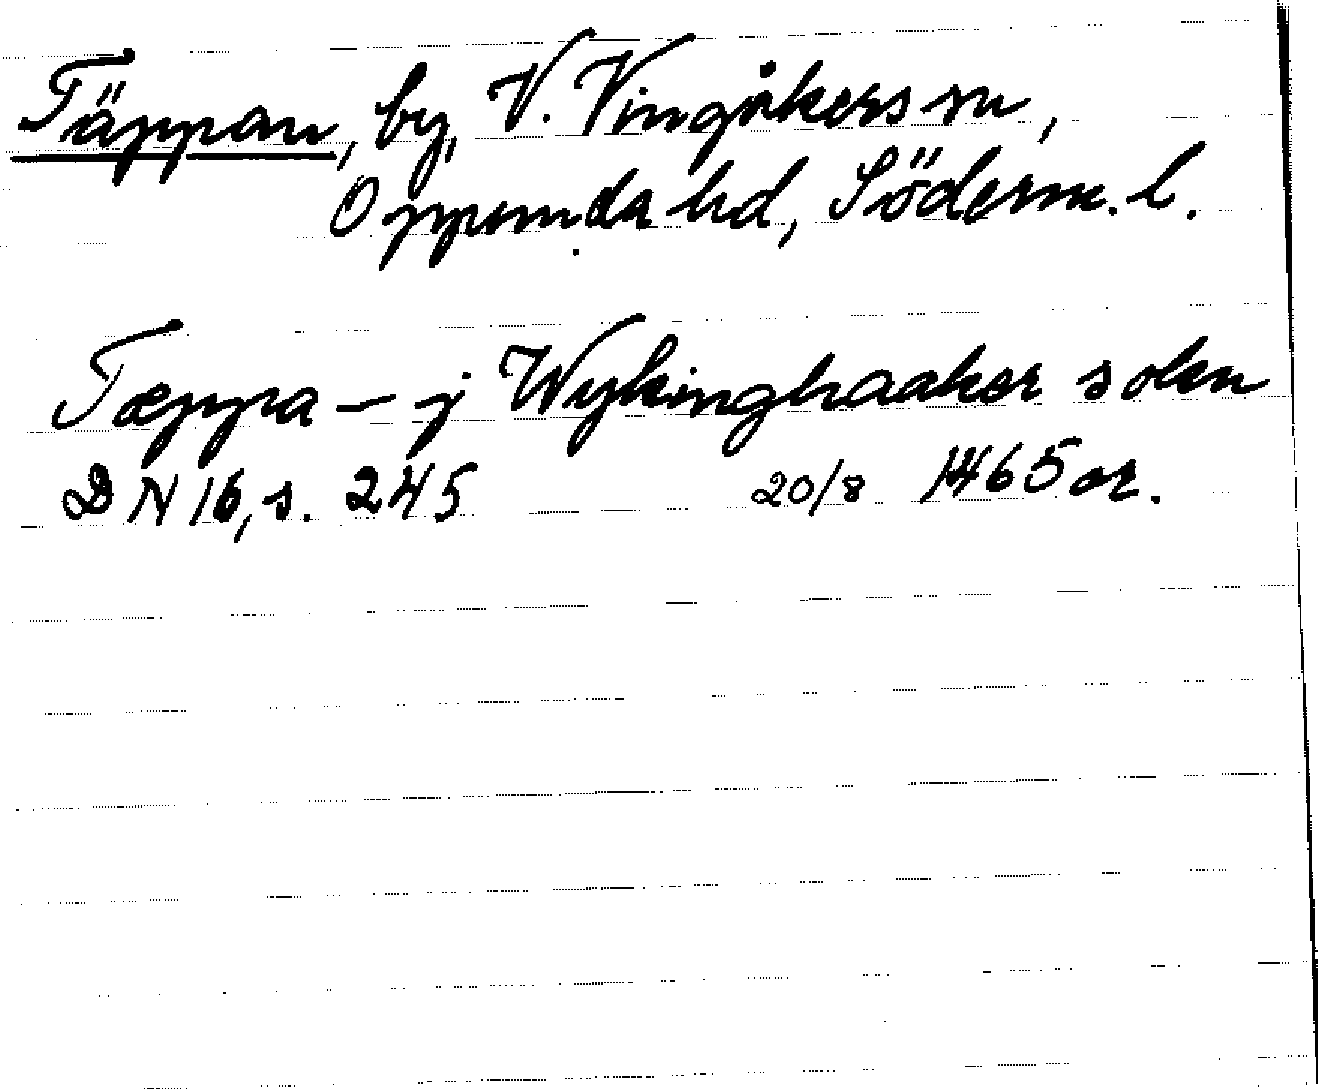 Täppan, by, V. Vingåkers sn,
Oppunda hd, Söderm. l.
Tæppa – j Wykinghaaker sokn
DN 16, s. 245 20/8 1465 or.